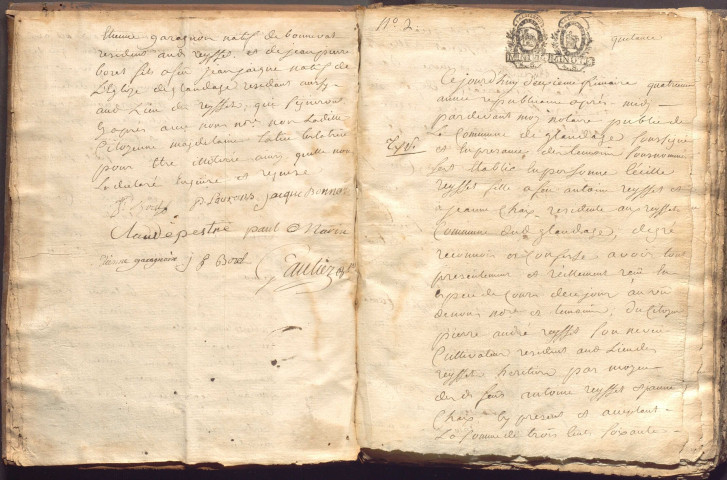 Etienne garagnon natif de bonneval
resident aud reysset, et de jean pierre
boret fils a feu jean jacque natif de
L'Eglize de glandage resident aussy
aud Lieu du reysset, qui signeront
cy apres avec nous no.re non Ladite
Citoyenne magdelaine
pour être illiterée ainsy qu'elle nous
La declaré Enquise et requise
P Lourons jacque Bonnot
Claude pestre paul Navin
Etienne garagnon j p Boret
Gautier
N.o 2.
quitance
Ce jourd'huy deuxieme frimaire quatrieme
année republicaine apres midy
pardevant moy notaire public de
La Commune de glandage soussigné
et En presance des temoins sousnommés
fut Etablie En personne Cécille
reysset fille a feu antoine reysset et
a jeanne Chaix residente au reysset
Commune dud glandage, de gré
reconnoit et Confesse avoir tout
presentement et réellement reçu En
Espece de Cours de ce jour au vû
de nous no.re et temoins, Du Citoyen
pierre andré reysset son neveu
Cultivateur resident aud Lieu du
reysset heritier par moyen
des d. feus antoine reysset et jeanne
Chaix icy present et acceptant
La somme de trois Cent soixante